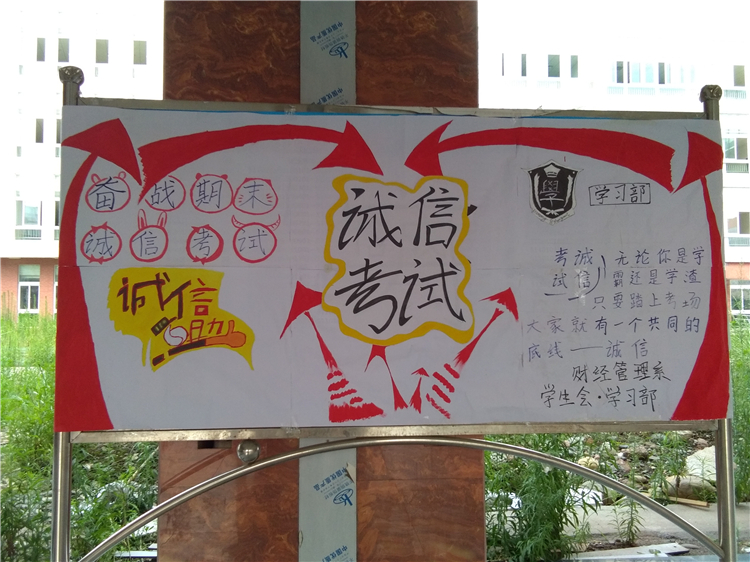 备战期末
诚信考试
诚信
助
诚信
考试
學
学习部
考诚 无论你是学
试信 霸还是学渣
——只要踏上考场
大家就有一个共同的
底线——诚信
财经管理系
学生会·学习部